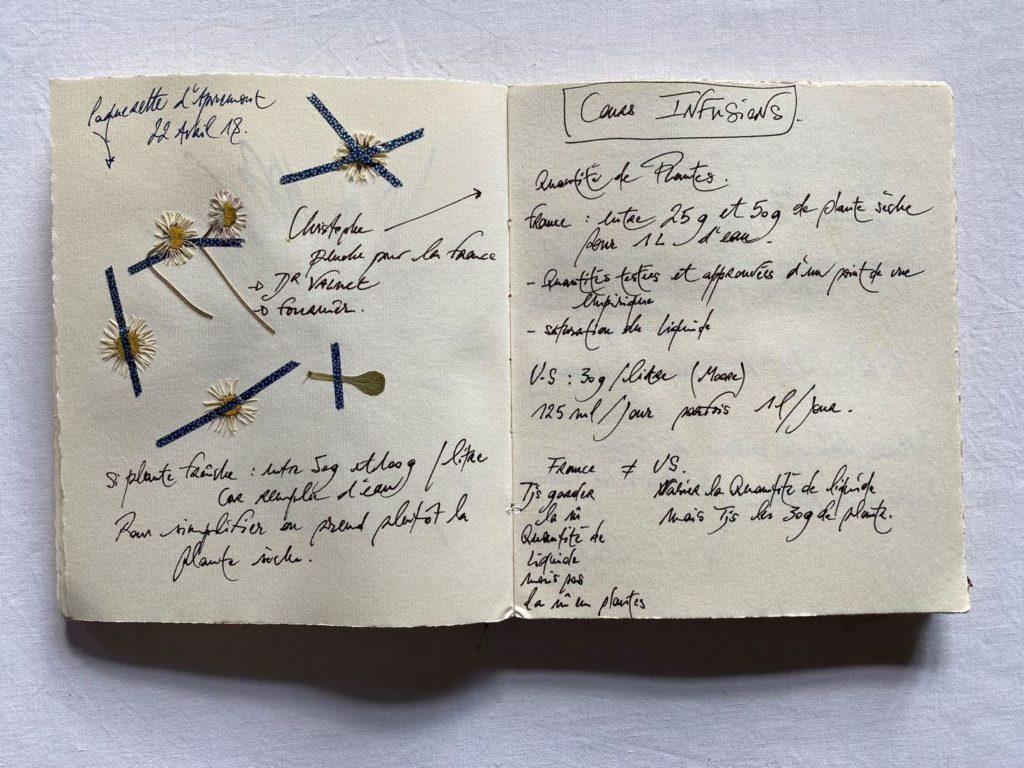 Paquerette d'Apremont
22 Avril 18.
Christophe
penche pour la France
→ Dr Valnet
→ Fournier.
Si plante fraîche : entre 50g et 100g / litre
Car remplir d'eau
Pour simplifier on prend plutôt la
plante sèche.
Cours INFUSIONS.
Quantité de Plantes.
France : entre 25g et 50g de plante sèche
pour 1L d'eau.
- Quantités testées et approuvées d'un point de vue
empirique
- saturation du liquide
U-S : 30g/litre (Moore)
125 ml/jour parfois 1l/jour.
France ≠ US.
Tjs garder
la m̄
Quantité de
liquide
mais pas
la m̄ en plantes
Varier la Quantité de liquide
mais Tjs les 30g de plante.